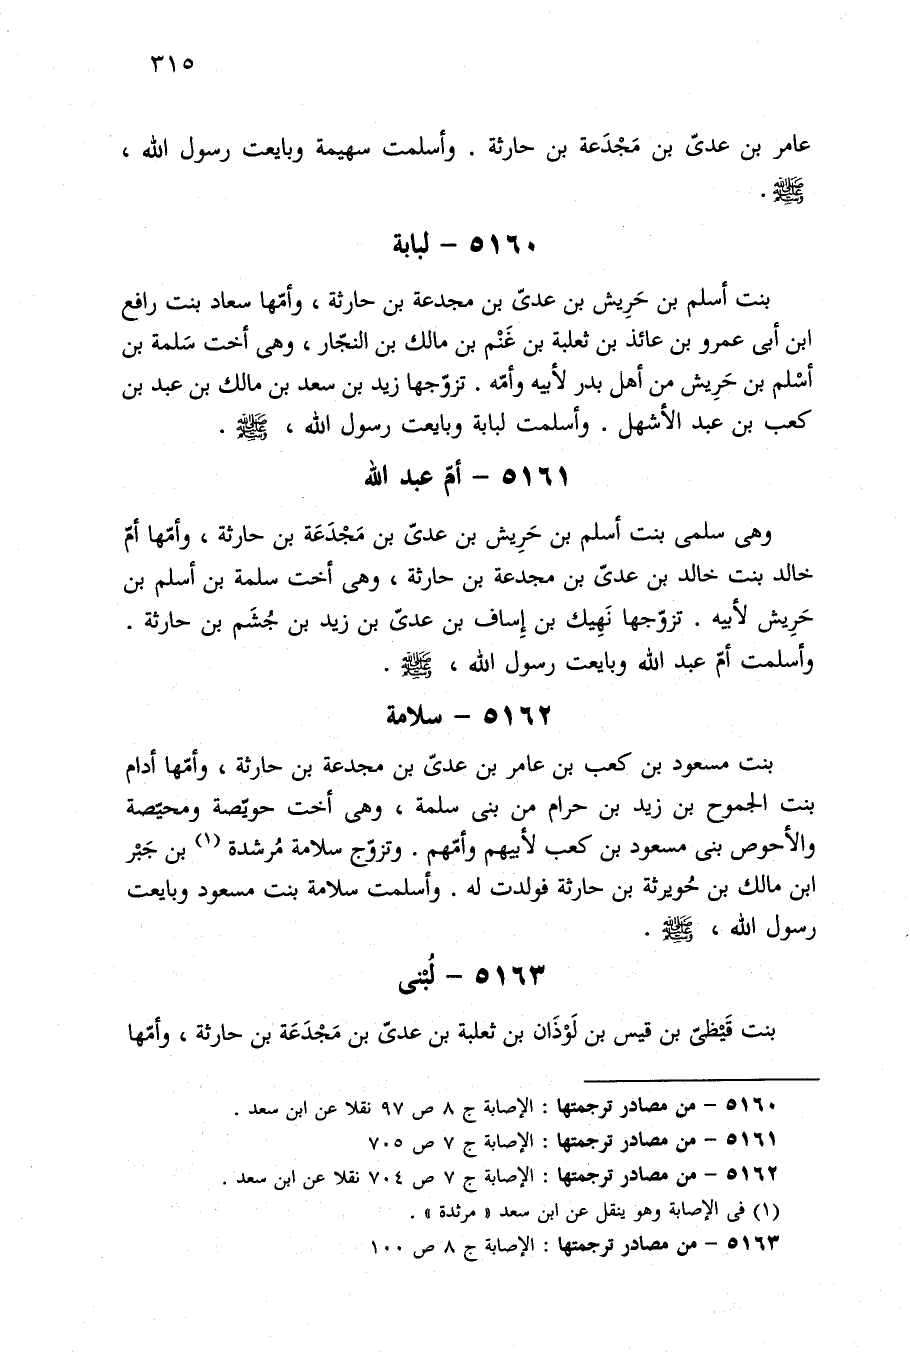 ٣١٥
عامر بن عدىّ بن مَجْدَعة بن حارثة . وأسلمت سهيمة وبايعت رسول الله ،
ﷺ .
٥١٦٠ – لبابة
بنت أسلم بن حَرِيش بن عدىّ بن مجدعة بن حارثة ، وأمّها سعاد بنت رافع
ابن أبى عمرو بن عائذ بن ثعلبة بن غَنْم بن مالك بن النجّار ، وهى أخت سَلمة بن
أسْلم بن حَرِيش من أهل بدر لأبيه وأمّه . تزوّجها زيد بن سعد بن مالك بن عبد بن
كعب بن عبد الأشهل . وأسلمت لبابة وبايعت رسول الله ، ﷺ .
٥١٦١ – أمّ عبد الله
وهى سلمى بنت أسلم بن حَرِيش بن عدىّ بن مَجْدَعَة بن حارثة ، وأمّها أمّ
خالد بنت خالد بن عدىّ بن مجدعة بن حارثة ، وهى أخت سلمة بن أسلم بن
حَرِيش لأبيه . تزوّجها نَهِيك بن إساف بن عدىّ بن زيد بن جُشَم بن حارثة .
وأسلمت أمّ عبد الله وبايعت رسول الله ، ﷺ .
٥١٦٢ – سلامة
بنت مسعود بن كعب بن عامر بن عدىّ بن مجدعة بن حارثة ، وأمّها أدام
بنت الجموح بن زيد بن حرام من بنى سلمة ، وهى أخت حويّصة ومحيّصة
والأحوص بنى مسعود بن كعب لأبيهم وأمّهم . وتزوّج سلامة مُرشدة (١) بن جَبْر
ابن مالك بن حُويرثة بن حارثة فولدت له . وأسلمت سلامة بنت مسعود وبايعت
رسول الله ، ﷺ .
٥١٦٣ – لُبْنى
بنت قَيْظىّ بن قيس بن لَوْذَان بن ثعلبة بن عدىّ بن مَجْدَعَة بن حارثة ، وأمّها
٥١٦٠ – من مصادر ترجمتها : الإصابة ج ٨ ص ٩٧ نقلا عن ابن سعد .
٥١٦١ – من مصادر ترجمتها : الإصابة ج ٧ ص ٧٠٥
٥١٦٢ – من مصادر ترجمتها : الإصابة ج ٧ ص ٧٠٤ نقلا عن ابن سعد .
(١) فى الإصابة وهو ينقل عن ابن سعد « مرثدة » .
٥١٦٣ – من مصادر ترجمتها : الإصابة ج ٨ ص ١٠٠